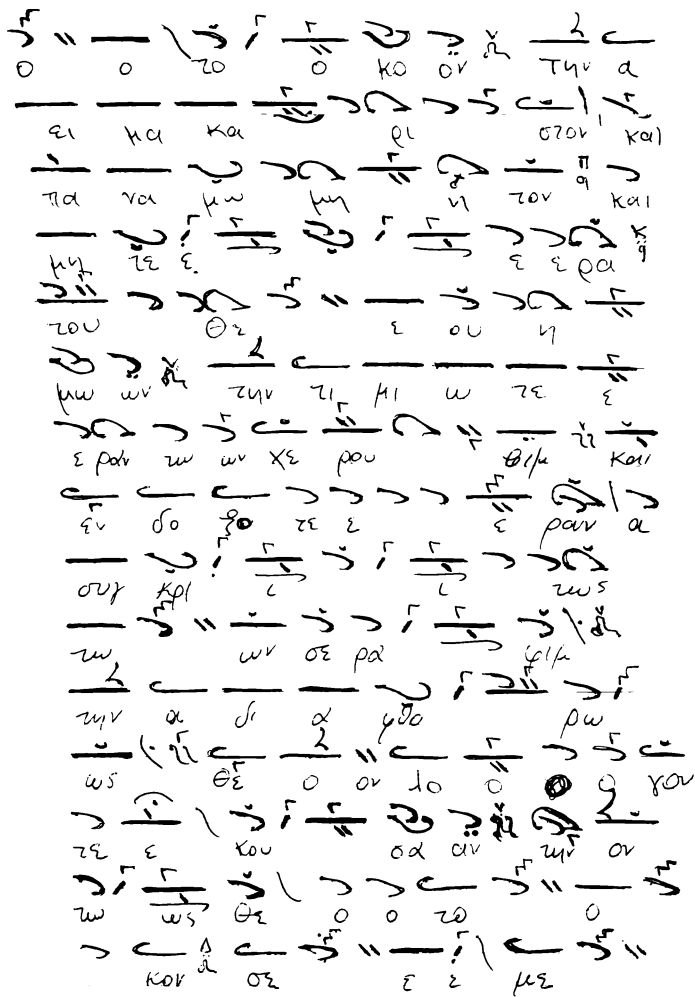 ο ο το ο κο ον την α
ει μα κα ρι στον και
πα να μω μη η τον και
μη τε ε ε ε ρα
του θε ε ου η
μω ων την τι μι ω τε ε
ε ραν τω ων χε ρου βιμ και
εν δο ξο τε ε ε ραν α
συγ κρι ι ι τως
τω ων σε ρα φιμ
την α δι α φθο ρω
ως θε ο ον λο ο ο γον
τε ε κου σα αν την ον
τω ως θε ο ο το ο
κον σε ε ε με